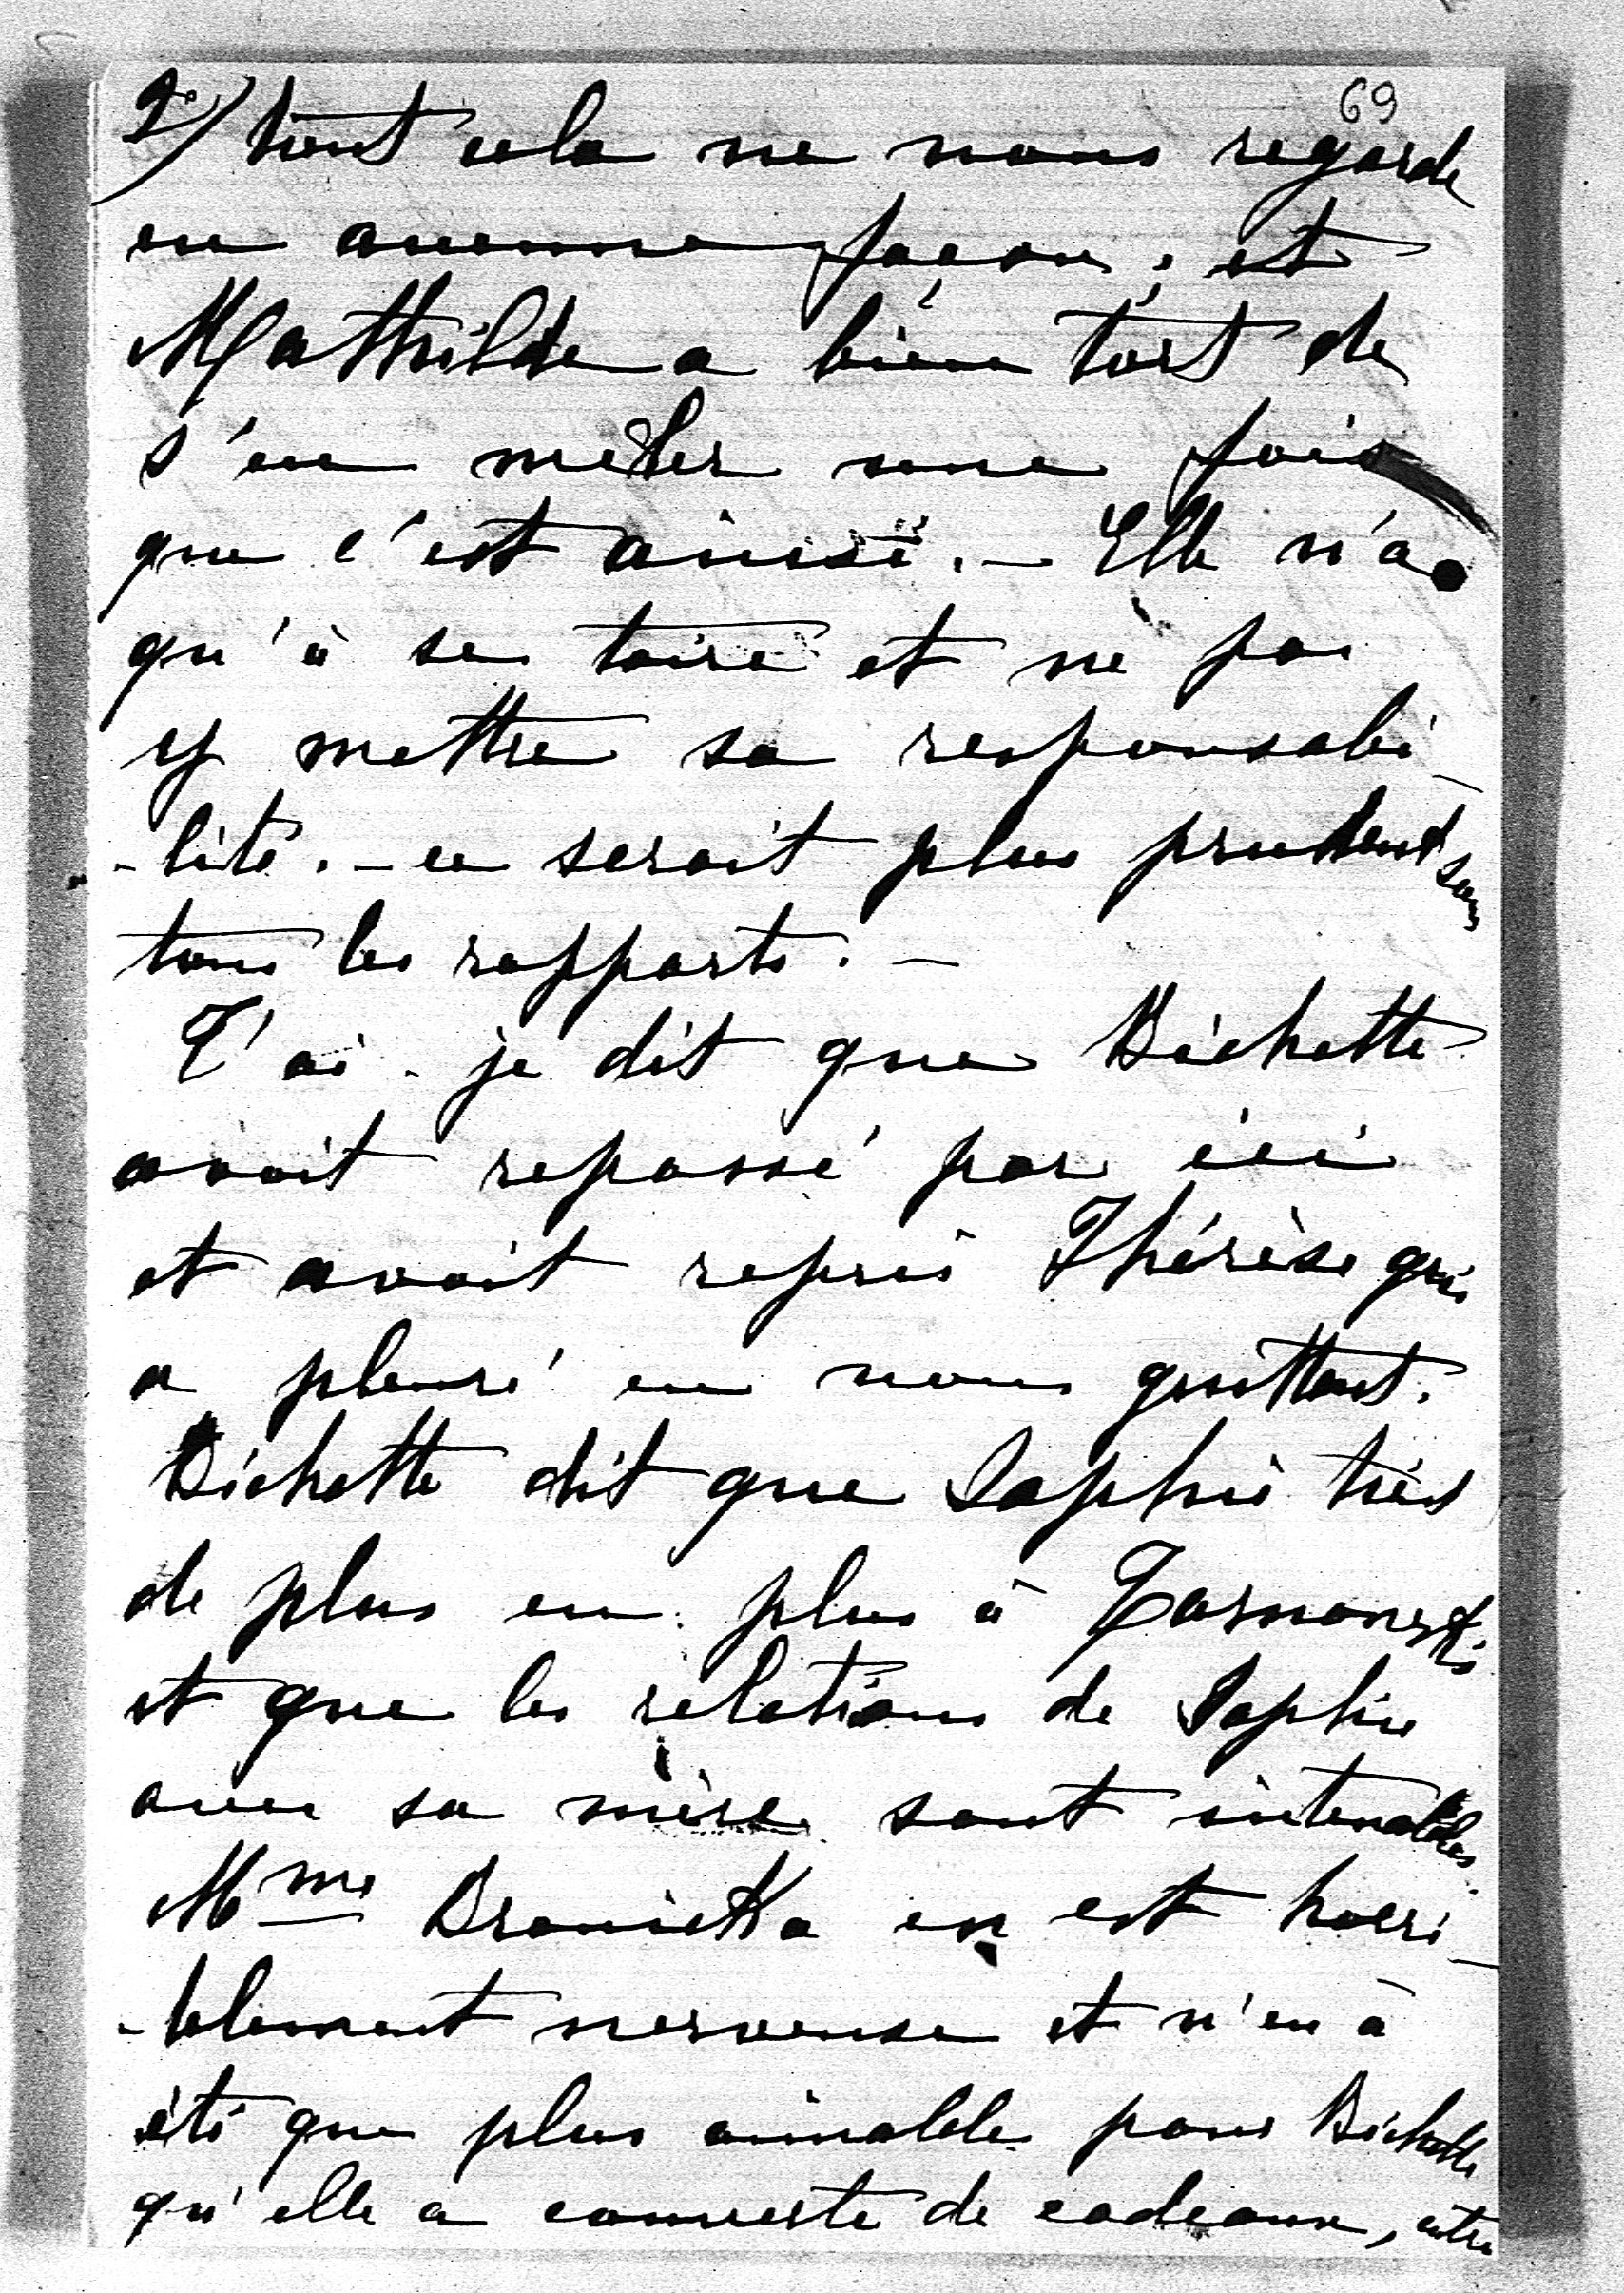 69
2°/ tout cela ne nous regarde
en aucune façon, et
Mathilde a bien tort de
s'en mêler une fois
que c'est ainsi. — Elle n'a
qu'à se taire et ne pas
y mettre sa responsabi-
-lité. — ce serait plus prudent sous
tous les rapports. —
T'ai-je dit que Bichette
avait repassé par ici
et avait repris Thérèse qui
a pleuré en nous quittant.
Bichette dit que Sophie
de plus en plus à Tarnowski
et que les relations de Sophie
avec sa mère sont intenables
Mme Branicka en est horri-
-blement nerveuse et n'en à
été que plus aimable pour Bichette
qu'elle a couverte de cadeaux, entre